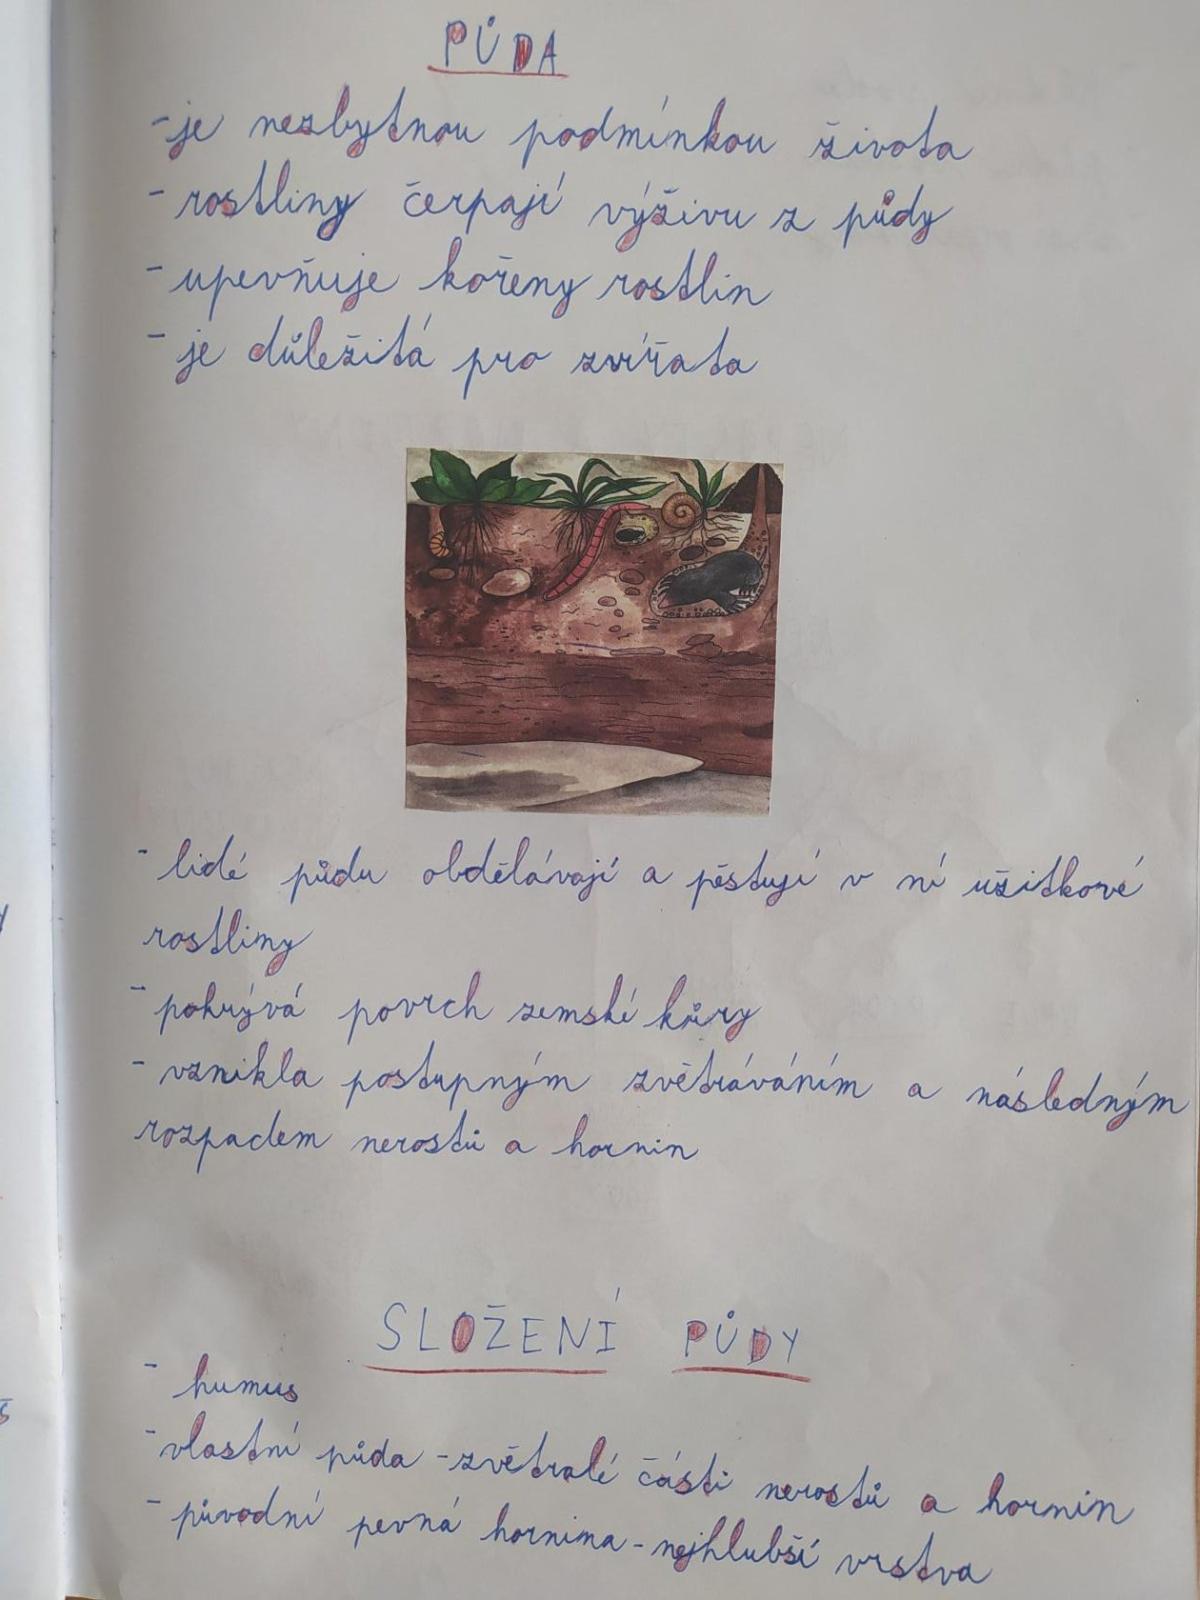 PŮDA
- je nezbytnou podmínkou života
- rostliny čerpají výživu z půdy
- upevňuje kořeny rostlin
- je důležitá pro zvířata
- lidé půdu obdělávají a pěstují v ní užitkové
rostliny
- pokrývá povrch zemské kůry
- vznikla postupným zvětráváním a následným
rozpadem nerostů a hornin
SLOŽENÍ PŮDY
- humus
- vlastní půda - zvětralé části nerostů a hornin
- původní pevná hornina - nejhlubší vrstva